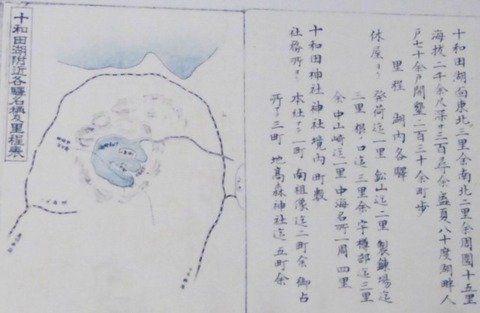 十和田湖面東北三里余南北二里余周圍十五里
海抜二千余尺深サ二百尋余盛夏八十度湖畔人
戸七十余戸開墾二百三十余町歩
里程 湖内各驛
休屋ヨリ 発荷迄一里 鉛山迄二里 製錬場迄
三里 銀口迄三里余 宇樽部迄三里
余 中山崎迄里 中海名所一周四里
十和田神社神社境内町数
社務所ヨリ 本社ヘ一町 南祖像迄二町余 御占
所ヘ三町 地高森神社迄五町余
十和田湖附近各驛名称及里程表